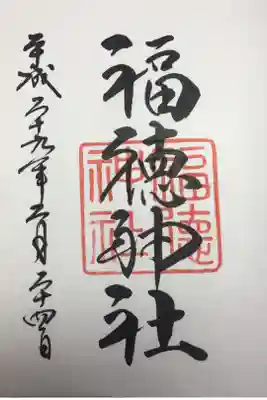 福徳神社
福徳
神社
平成二十九年月二十四日